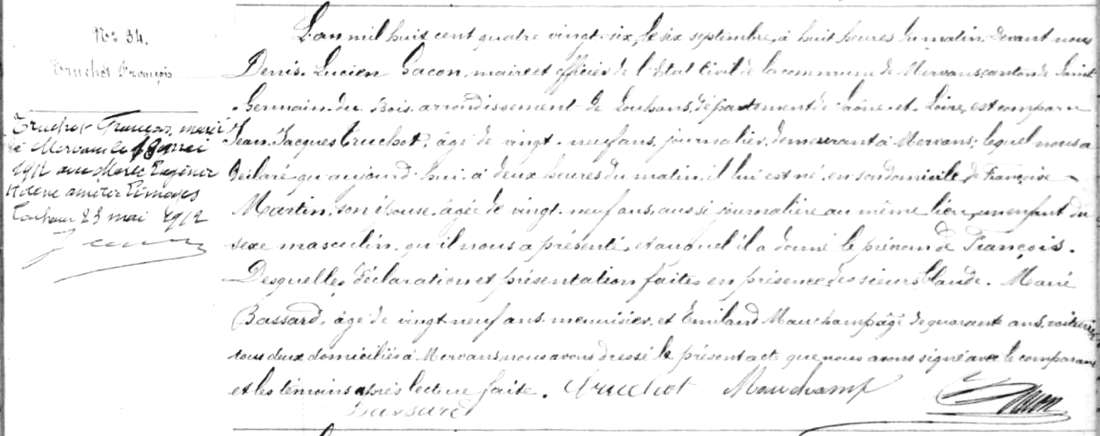 N° 34.
Truchot François
Truchot François, marié
à Mervans le 18 mai
1912 avec Marie Eugénie
Hélène
Louhans 23 mai 1912
L'an mil huit cent quatre vingt-six, le six septembre, à huit heures du matin, devant nous
Denis Lucien Gacon, maire et officier de l'Etat Civil de la commune de Mervans, canton de Saint
Germain du Bois, arrondissement de Louhans, département de Saône-et-Loire, est comparu
Jean Jacques Truchot, âgé de vingt-neuf ans, journalier, demeurant à Mervans, lequel nous a
déclaré qu'aujourd'hui, à deux heures du matin, il lui est né, en son domicile, de Françoise
Martin, son épouse, âgée de vingt-neuf ans, aussi journalière au même lieu, un enfant du
sexe masculin, qu'il nous a présenté, et auquel il a donné le prénom de François.
Desquelles déclaration et présentation faites en présence des sieurs Claude-Marie
Bassard, âgé de vingt neuf ans, menuisier, et Emiland Mauchamp, âgé de quarante ans, voiturier
tous deux domiciliés à Mervans, nous avons dressé le présent acte que nous avons signé avec le comparant
et les témoins après lecture faite. Truchot Mauchamp Gacon
Bassard